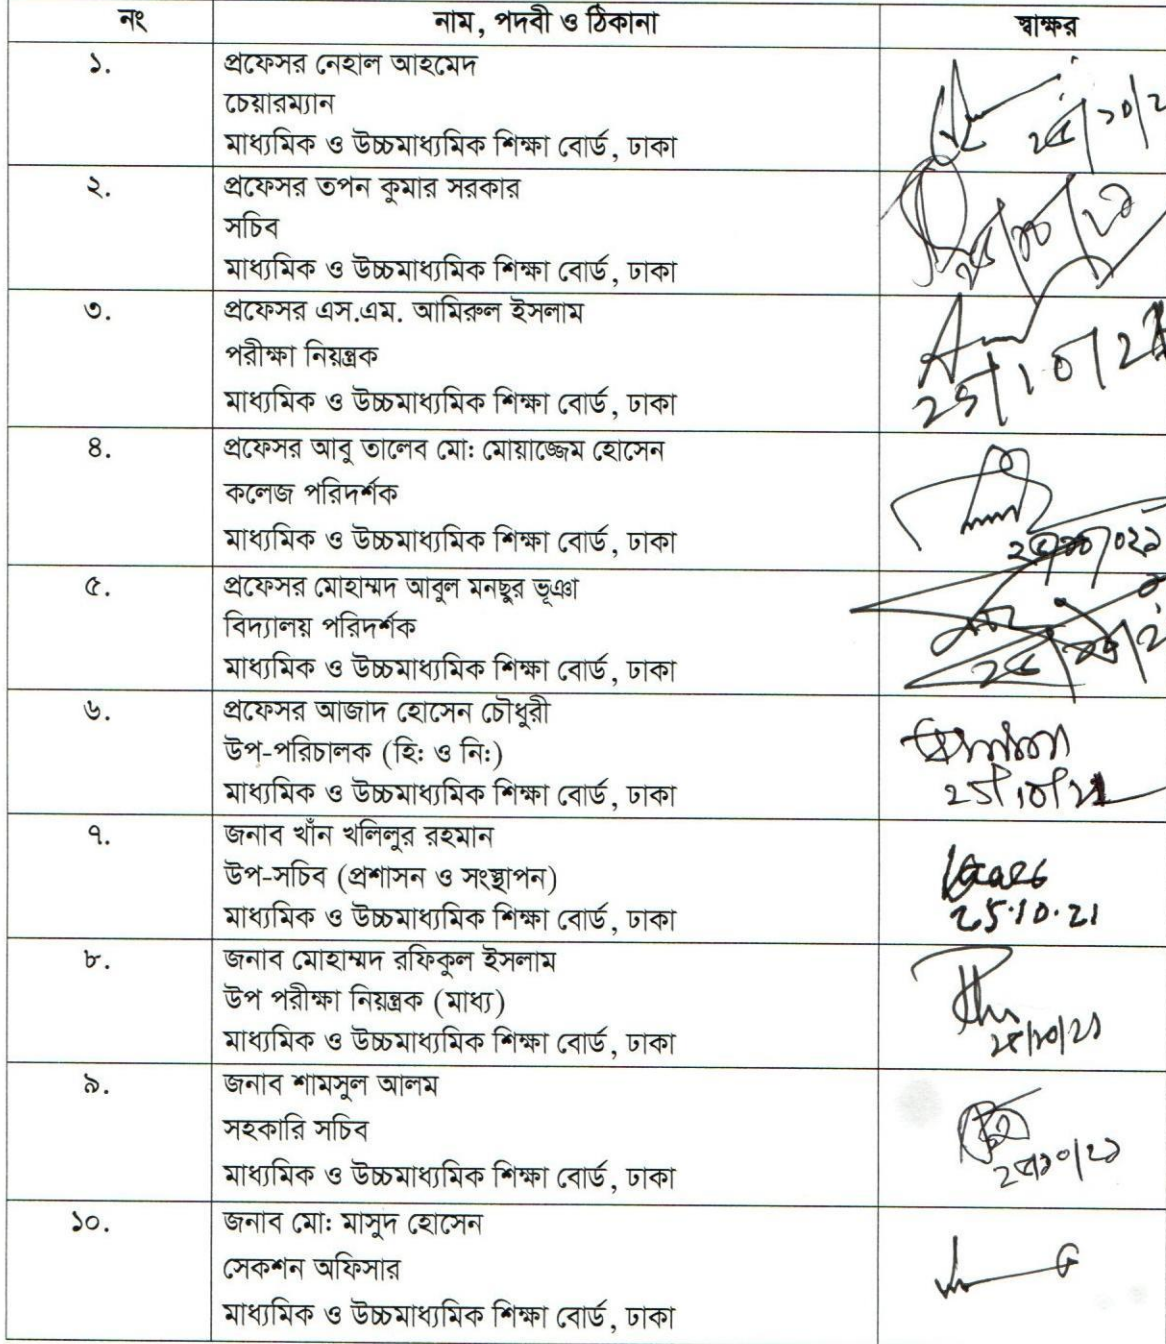 নং নাম, পদবী ও ঠিকানা স্বাক্ষর
১. প্রফেসর নেহাল আহমেদ
চেয়ারম্যান
মাধ্যমিক ও উচ্চমাধ্যমিক শিক্ষা বোর্ড, ঢাকা
২. প্রফেসর তপন কুমার সরকার
সচিব
মাধ্যমিক ও উচ্চমাধ্যমিক শিক্ষা বোর্ড, ঢাকা
৩. প্রফেসর এস.এম. আমিরুল ইসলাম
পরীক্ষা নিয়ন্ত্রক
মাধ্যমিক ও উচ্চমাধ্যমিক শিক্ষা বোর্ড, ঢাকা
25/10/21
৪. প্রফেসর আবু তালেব মো: মোয়াজ্জেম হোসেন
কলেজ পরিদর্শক
মাধ্যমিক ও উচ্চমাধ্যমিক শিক্ষা বোর্ড, ঢাকা
৫. প্রফেসর মোহাম্মদ আবুল মনছুর ভূঞা
বিদ্যালয় পরিদর্শক
মাধ্যমিক ও উচ্চমাধ্যমিক শিক্ষা বোর্ড, ঢাকা
৬. প্রফেসর আজাদ হোসেন চৌধুরী
উপ-পরিচালক (হি: ও নি:)
মাধ্যমিক ও উচ্চমাধ্যমিক শিক্ষা বোর্ড, ঢাকা 25/10/21
৭. জনাব খাঁন খলিলুর রহমান
উপ-সচিব (প্রশাসন ও সংস্থাপন)
মাধ্যমিক ও উচ্চমাধ্যমিক শিক্ষা বোর্ড, ঢাকা 25.10.21
৮. জনাব মোহাম্মদ রফিকুল ইসলাম
উপ পরীক্ষা নিয়ন্ত্রক (মাধ্য)
মাধ্যমিক ও উচ্চমাধ্যমিক শিক্ষা বোর্ড, ঢাকা
৯. জনাব শামসুল আলম
সহকারি সচিব
মাধ্যমিক ও উচ্চমাধ্যমিক শিক্ষা বোর্ড, ঢাকা
১০. জনাব মো: মাসুদ হোসেন
সেকশন অফিসার
মাধ্যমিক ও উচ্চমাধ্যমিক শিক্ষা বোর্ড, ঢাকা